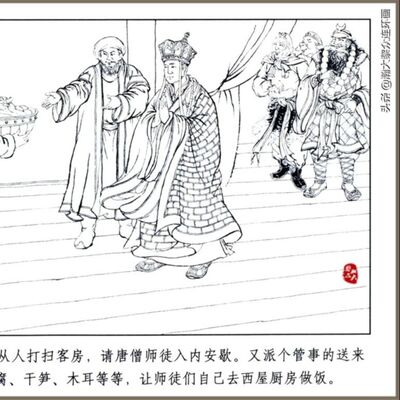 从人打扫客房，请唐僧师徒入内安歇。又派个管事的送来
腐、干笋、木耳等等，让师徒们自己去西屋厨房做饭。
头条 @连环画